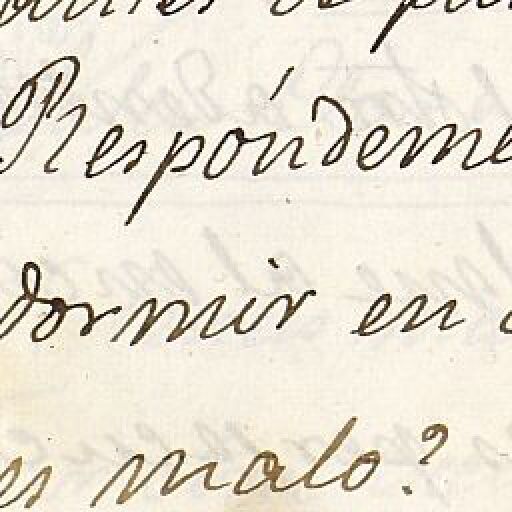 de
Respóndeme
dormir en
es malo?